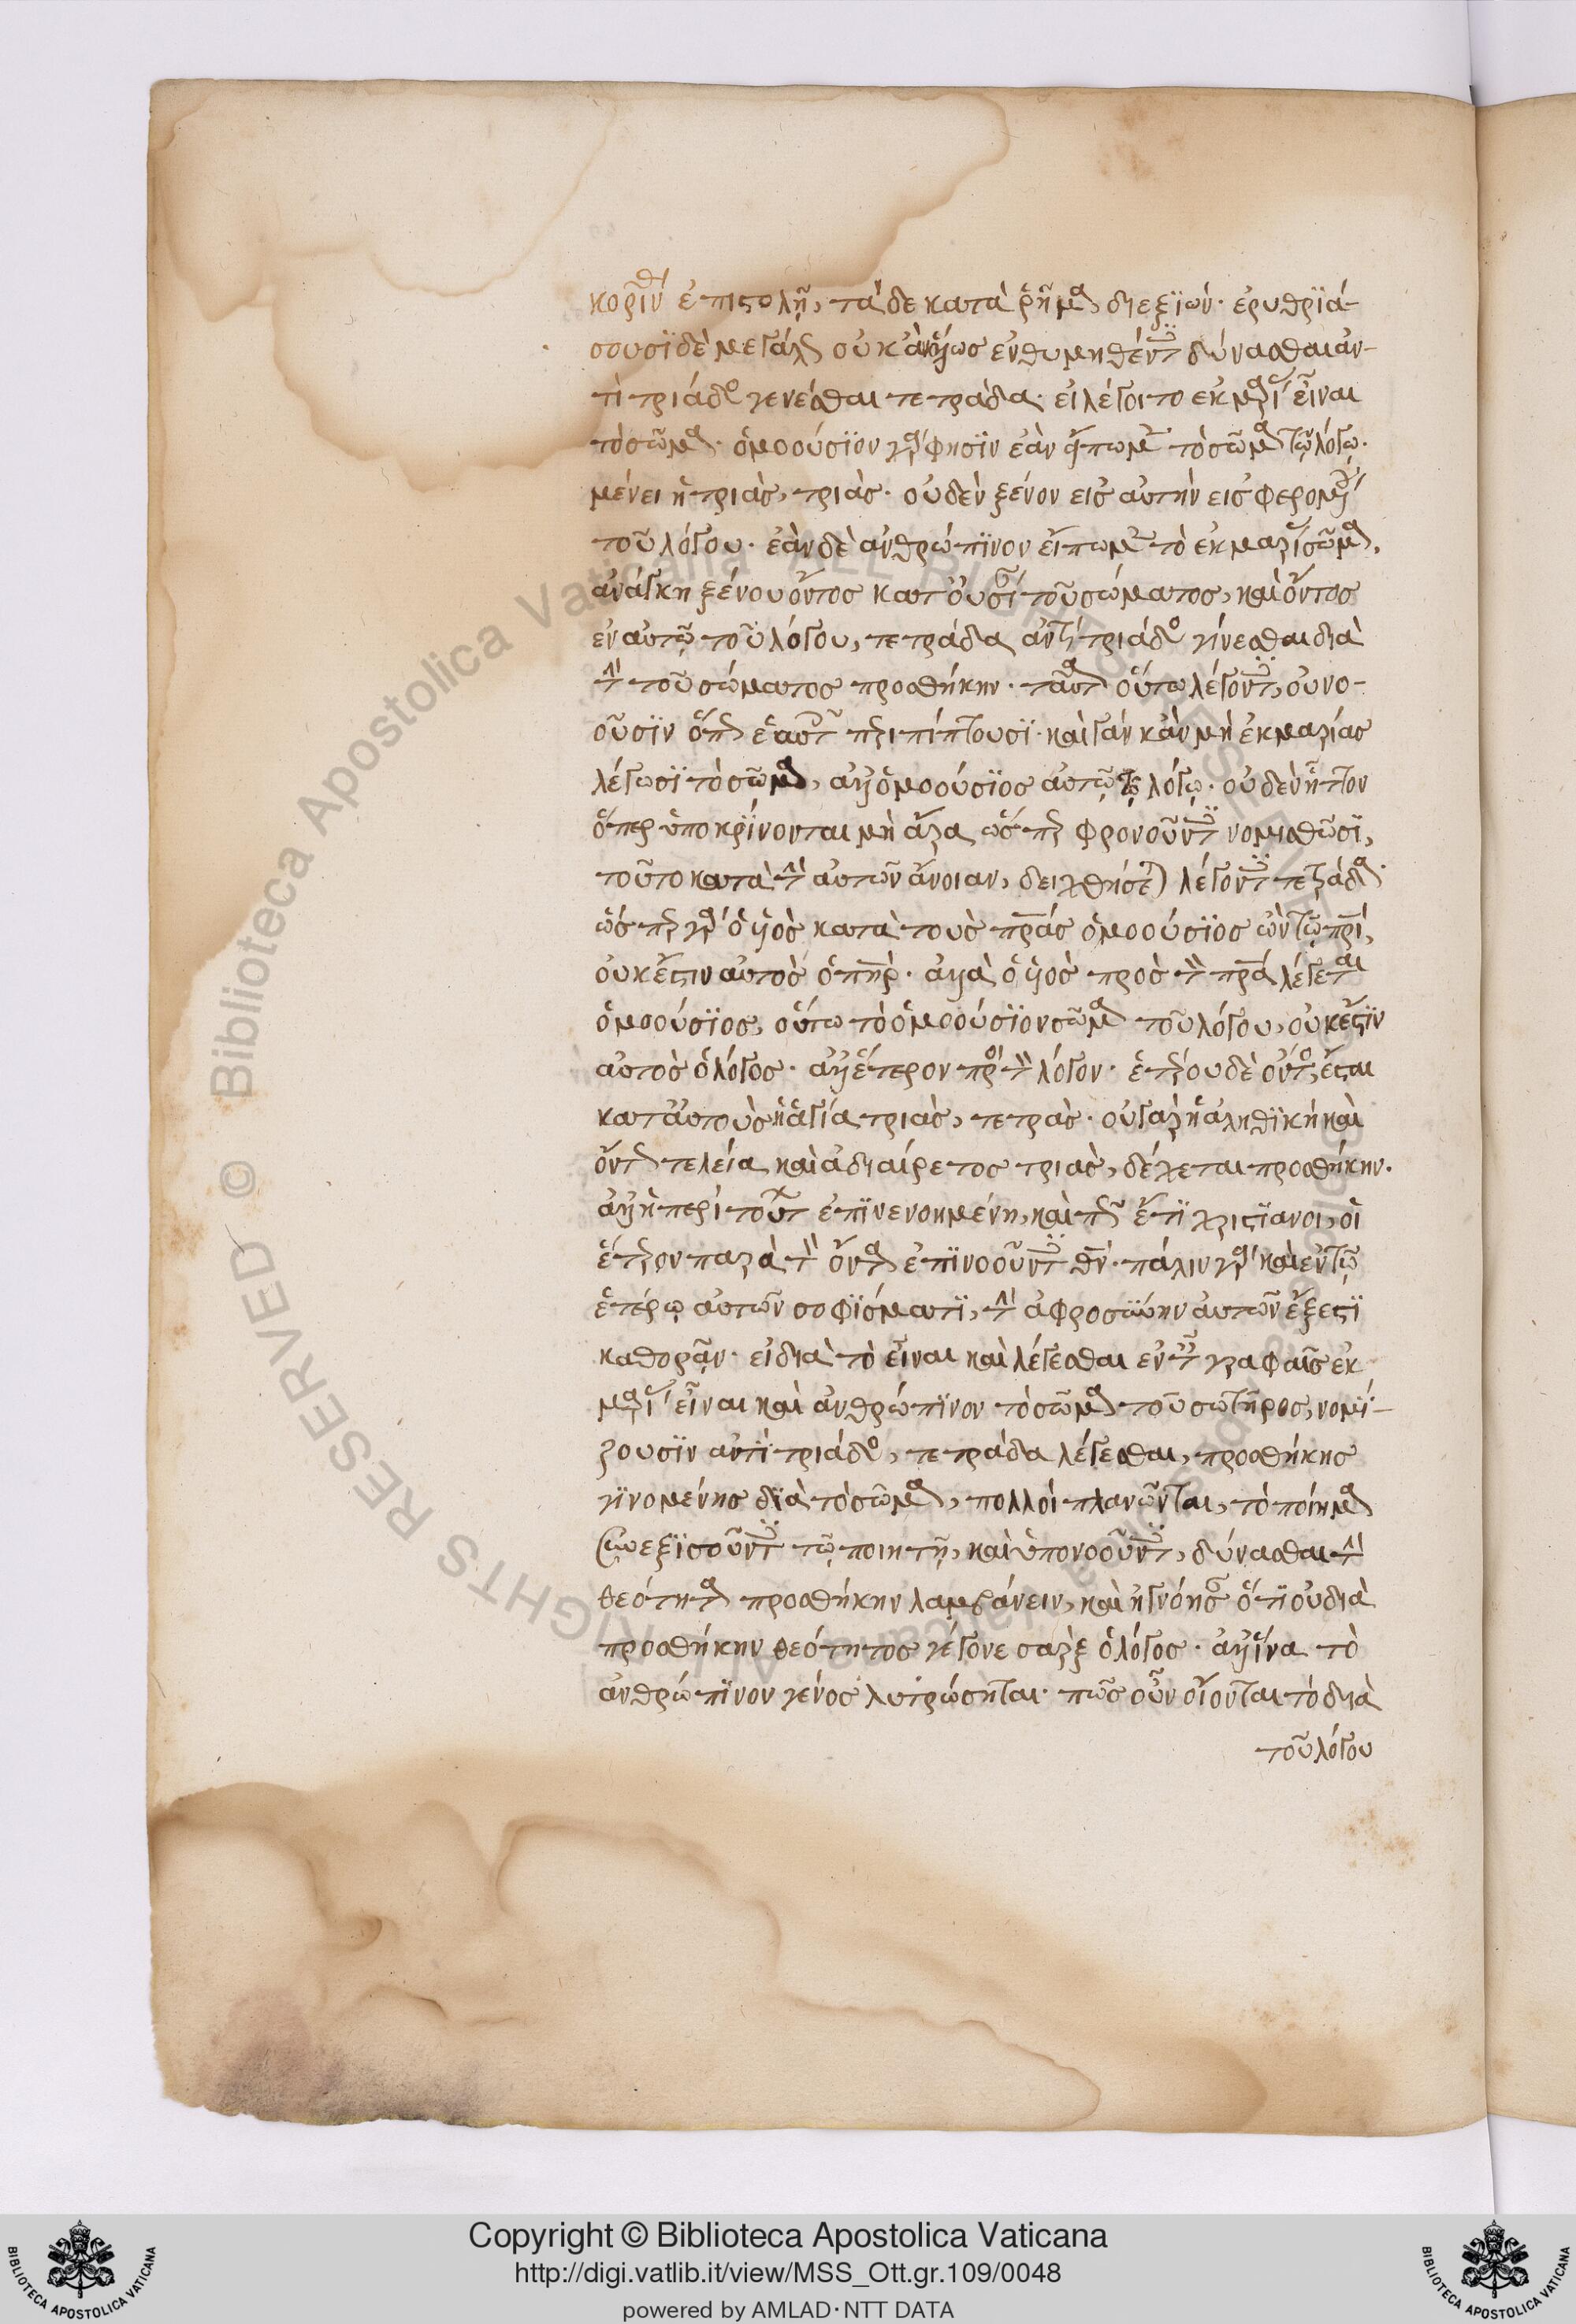 κορινθ(ίους) ἐπιστολῇ, τάδε κατὰ ῥῆμα, διεξϊών· ἐρυθρϊά-
σουσϊ δὲ μεγάλως οἱ κἂν ὅλως ἐνθυμηθέντες δύνασθαι ἀν-
τὶ τριάδος γενέσθαι τετράδα· εἰ λέγοιτο ἐκ μαρίας εἶναι
τὸ σῶμα· ὁμοούσϊον γάρ φησϊν ἐὰν εἴπωμεν τὸ σῶμα τῷ λόγῳ·
μένει ἡ τριὰς, τριὰς· οὐδὲν ξένον εἰς αὐτὴν εἰσφερομένου
τοῦ λόγου· ἐὰν δὲ ἀνθρώπϊνον εἴπωμεν τὸ ἐκ μαρίας σῶμα,
ἀνάγκη ξένου ὄντος κατ' οὐσίαν τοῦ σώματος, καὶ ὄντος
ἐν αὐτῷ τοῦ λόγου, τετράδα ἀντὶ τριάδος γίνεσθαι διὰ
τὴν τοῦ σώματος προσθήκην· ταῦτα οὕτω λέγοντες, οὐ νο-
οῦσϊν ὅπως ἑαυτοῖς περιπίπτουσϊ· καὶ γὰρ κἂν μὴ ἐκ μαρίας
λέγωσϊ τὸ σῶμα, ἀλλ' ὁμοούσϊος αὐτῷ τῷ λόγῳ· οὐδὲν ἧττον
ὅπερ ὑποκρίνονται μὴ ἄρα ὥσπερ φρονοῦντες νομισθῶσϊ,
τοῦτο κατὰ τὴν αὐτῶν ἄνοιαν, δειχθήσεται λέγοντες τετράδα·
ὥσπερ γὰρ ὁ υἱὸς κατὰ τοὺς πρας ὁμοούσϊος ὢν τῷ πρι,
οὐκ ἔστιν αὐτὸς ὁ πηρ· ἀλλὰ ὁ υἱὸς πρὸς τὸν πρα λέγεται
ὁμοούσϊος, οὕτω τὸ ὁμοούσϊον σῶμα τοῦ λόγου, οὐκ ἔστϊν
αὐτὸς ὁ λόγος· ἀλλ' ἕτερον πρὸς τὸν λόγον· ἑτέρου δὲ ὄντος, ἔσται
κατ' αὐτοὺς ἡ ἁγία τριὰς, τετράς· οὐ γὰρ ἡ ἀληθϊκὴ καὶ
ὄντως τελεία καὶ ἀδιαίρετος τριὰς, δέχεται προσθήκην·
ἀλλ' ἡ περὶ τούτων ἐπϊνενοημένη, καὶ πῶς ἔτϊ χριστϊανοι, οἱ
ἕτερον παρὰ τὸν ὄντα ἐπϊνοοῦντες θν· πάλιν γὰρ καὶ ἐν τῷ
ἑτέρῳ αὐτῶν σοφϊσματϊ, τὴν ἀφροσύνην αὐτῶν ἔξεστϊ
καθορᾷν· εἰ διὰ τὸ εἶναι καὶ λέγεσθαι ἐν ταῖς γραφαῖς ἐκ
μαρίας εἶναι καὶ ἀνθρώπϊνον τὸ σῶμα τοῦ σωτῆρος, νομί-
ζουσϊν ἀντὶ τριάδος, τετράδα λέγεσθαι, προσθήκης
γϊνομένης δϊὰ τὸ σῶμα, πολλοὶ πλανῶνται, τὸ ποίημα
συνεξϊσοῦντες τῷ ποιητῇ, καὶ ὑπονοοῦντες, δύνασθαι τὴν
θεότητα προσθήκην λαμβάνειν, καὶ ἠγνόησαν ὅτϊ οὐ διὰ
προσθήκην θεότητος γέγονε σαρξ ὁ λόγος· ἀλλ' ἵνα τὸ
ἀνθρώπϊνον γένος λυτρώσηται· πῶς οὖν οἴονται τὸ διὰ
τοῦ λόγου
Biblioteca Apostolica Vaticana ALL RIGHTS RESERVED ©
Copyright © Biblioteca Apostolica Vaticana
http://digi.vatlib.it/view/MSS_Ott.gr.109/0048
powered by AMLAD·NTT DATA
BIBLIOTECA APOSTOLICA VATICANA
BIBLIOTECA APOSTOLICA VATICANA